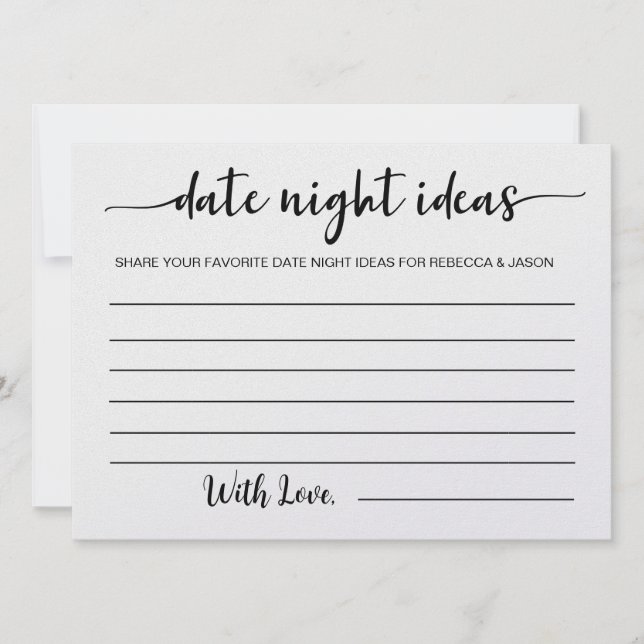 date night ideas
SHARE YOUR FAVORITE DATE NIGHT IDEAS FOR REBECCA & JASON
With Love,